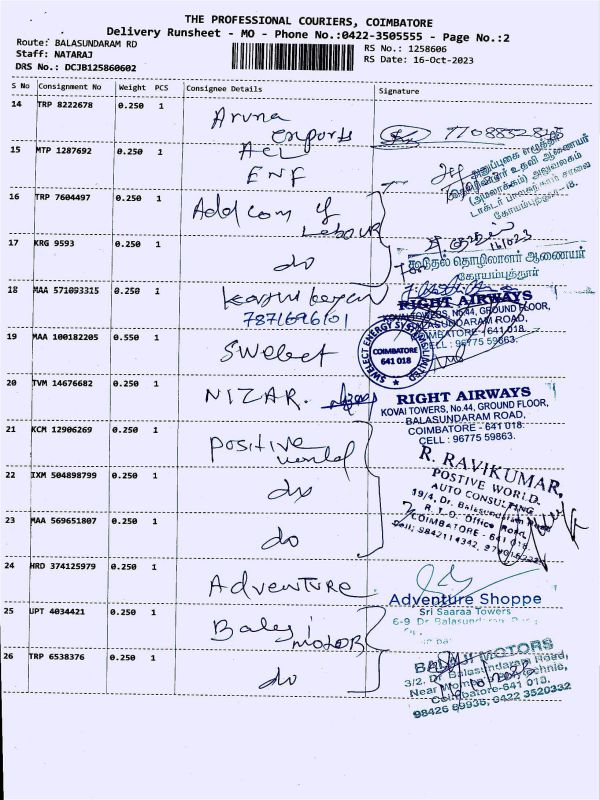 THE PROFESSIONAL COURIERS, COIMBATORE
Delivery Runsheet - MO - Phone No.:0422-3505555 - Page No.:2
Route: BALASUNDARAM RD
RS No.: 1258606
Staff: NATARAJ
RS Date: 16-Oct-2023
DRS No.: DCJB125860602
S No Consignment No Weight PCS Consignee Details Signature
14 TRP 8222678 0.250 1 Aruna
exports
15 MTP 1287692 0.250 1 ACL
ENF
16 TRP 7604497 0.250 1 Addcom of
Labour
17 KRG 9593 0.250 1 do
கூடுதல் தொழிலாளர் ஆணையர்
கோயம்புத்தூர்
18 MAA 571093315 0.250 1
7871696101
RIGHT AIRWAYS
KOVAI TOWERS, No.44, GROUND FLOOR,
BALASUNDARAM ROAD,
COIMBATORE - 641 018.
CELL : 96775 59863.
19 MAA 100182205 0.550 1 Swelect
SWELECT ENERGY SYSTEMS LIMITED
COIMBATORE
641 018
20 TVM 14676682 0.250 1 NIZAR.
RIGHT AIRWAYS
KOVAI TOWERS, No.44, GROUND FLOOR,
BALASUNDARAM ROAD,
COIMBATORE - 641 018.
CELL : 96775 59863.
21 KCM 12906269 0.250 1 positive
world
R. RAVIKUMAR,
POSTIVE WORLD.
AUTO CONSULTING
19/4, Dr. Balasundaram Road
R.T.O. Office Road,
COIMBATORE - 641 018.
Cell: 9842114342,
22 IXM 504898799 0.250 1 do
23 MAA 569651807 0.250 1 do
24 HRD 374125979 0.250 1 Adventure
Adventure Shoppe
Sri Saaraa Towers
6-9 Dr Balasundaram
25 UPT 4034421 0.250 1 Balaji
motors
BALAJI MOTORS
3/2, Dr. Balasundaram Road,
Coimbatore-641 018.
98426 69936, 0422 3520332
26 TRP 6538376 0.250 1 do